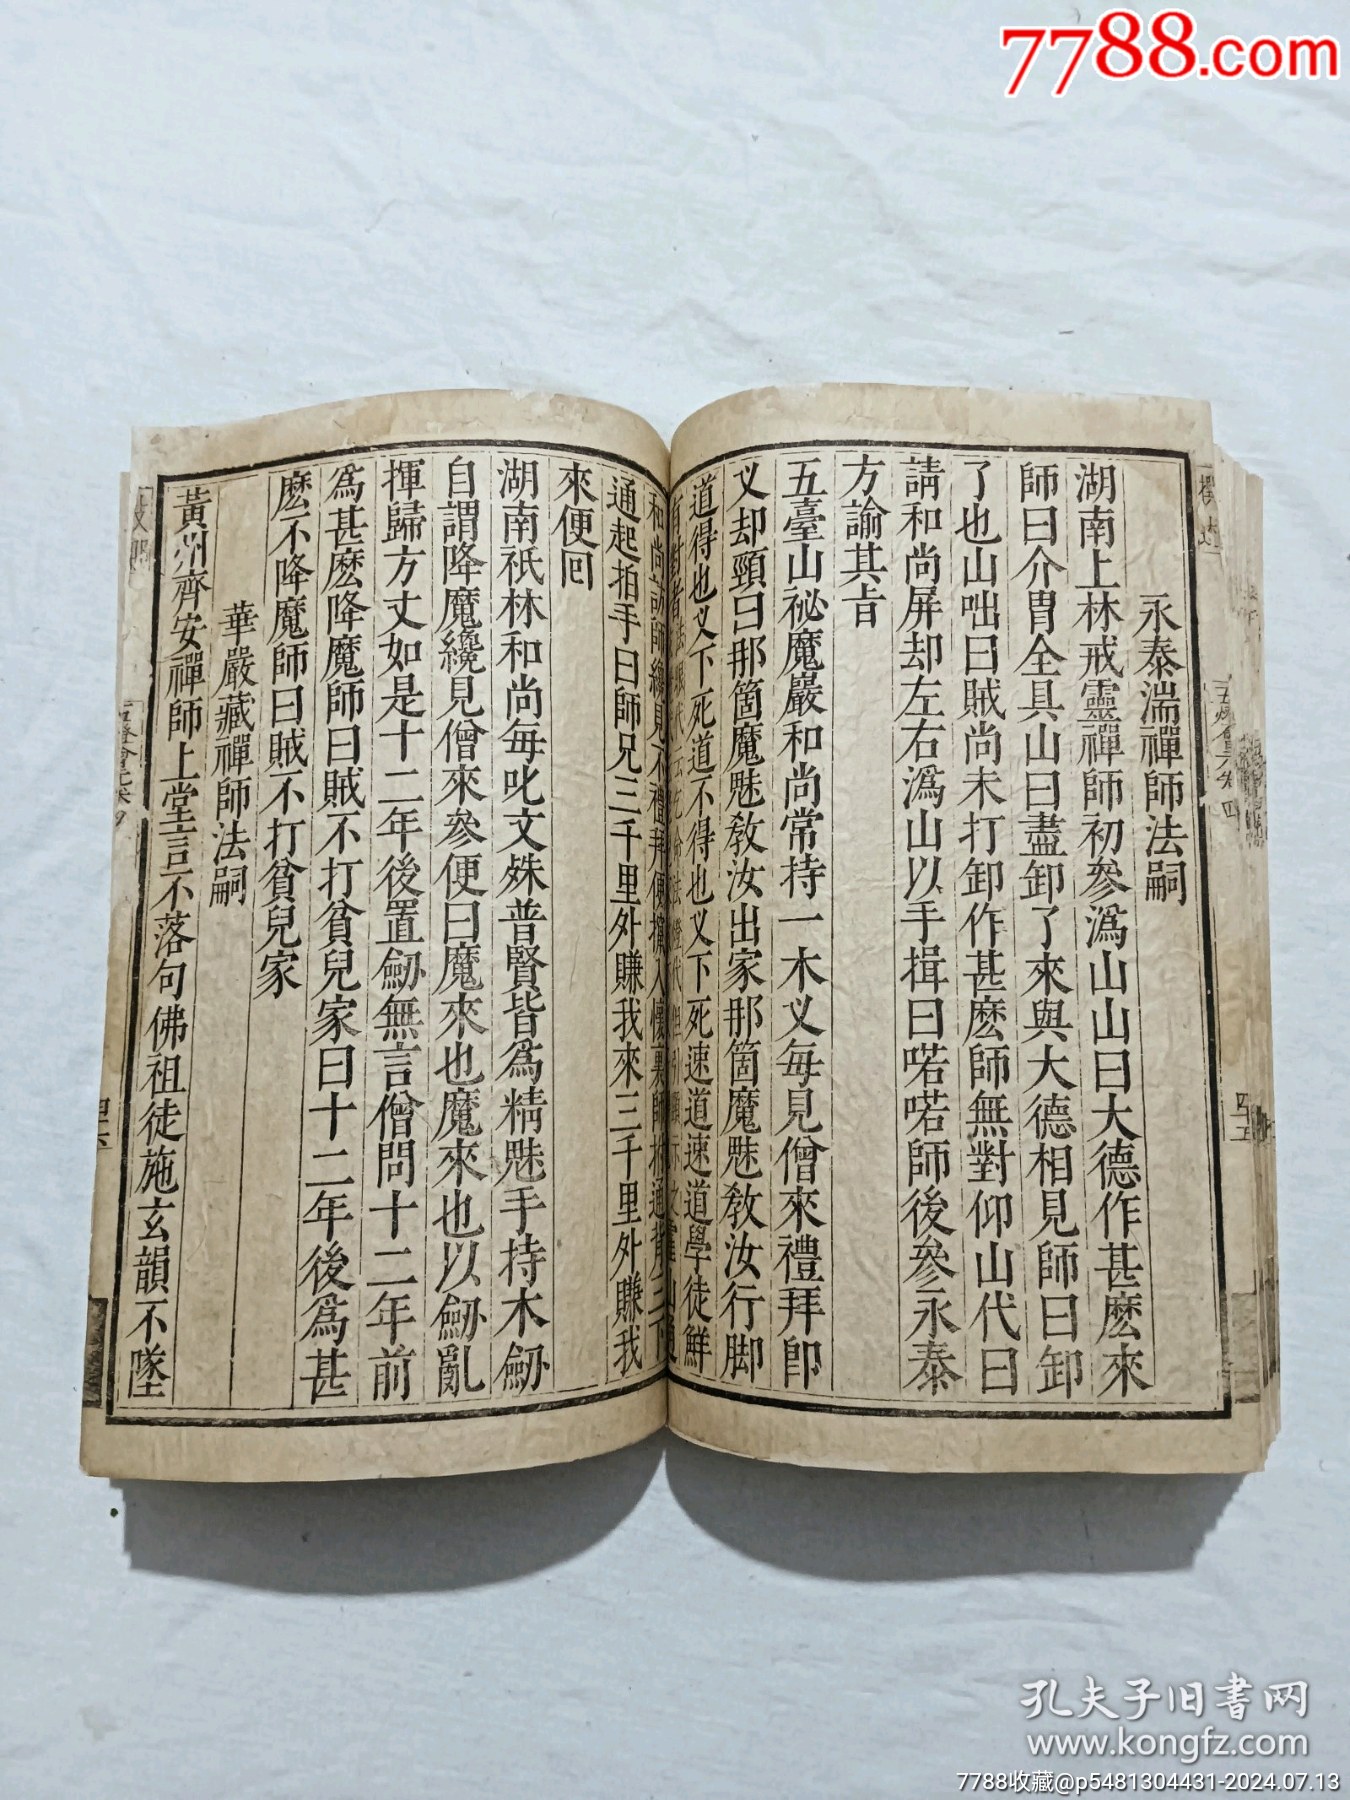 7788.com
永泰湍禪師法嗣
湖南上林戒靈禪師初參潙山山曰大德作甚麽來
師曰介胄全具山曰盡卸了來與大德相見師曰卸
了也山咄曰賊尚未打卸作甚麽師無對仰山代曰
請和尚屏却左右潙山以手揖曰喏喏師後參永泰
方諭其旨
五臺山祕魔巖和尚常持一木义每見僧來禮拜卽
义却頸曰那箇魔魅敎汝出家那箇魔魅敎汝行脚
道得也义下死道不得也义下死速道速道學徒鮮
有對者法眼代云乞命法燈代
和尚訪師纔見不禮拜便攛入懷裏師拊通背三下
通起拍手曰師兄三千里外賺我來三千里外賺我
來便回
湖南祇林和尚每叱文殊普賢皆爲精魅手持木劒
自謂降魔纔見僧來參便曰魔來也魔來也以劒亂
揮歸方丈如是十二年後置劒無言僧問十二年前
爲甚麽降魔師曰賊不打貧兒家曰十二年後爲甚
麽不降魔師曰賊不打貧兒家
華嚴藏禪師法嗣
黃州齊安禪師上堂言不落句佛祖徒施玄韻不墜
五燈會元卷四
四十五
孔夫子旧書网
www.kongfz.com
7788收藏@p5481304431-2024.07.13